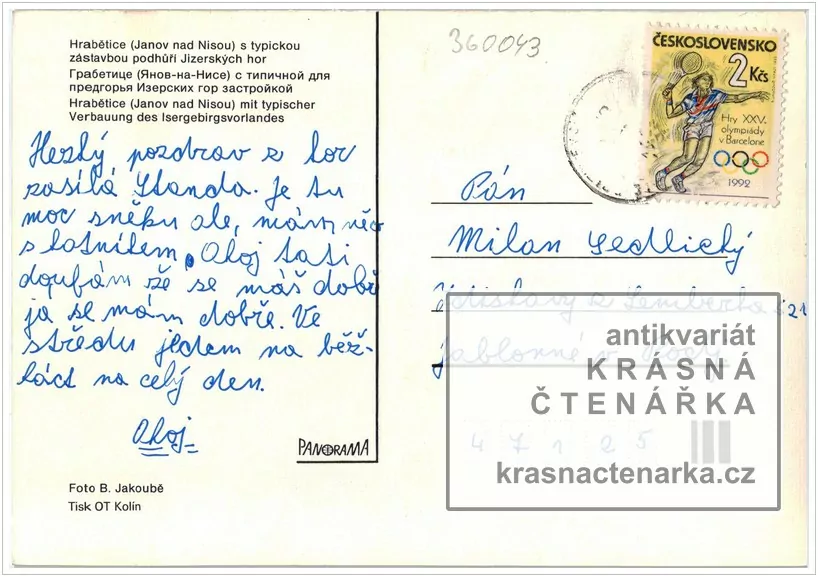 Hrabětice (Janov nad Nisou) s typickou
zástavbou podhůří Jizerských hor
Грабетице (Янов-на-Нисе) с типичной для
предгорья Изерских гор застройкой
Hrabětice (Janov nad Nisou) mit typischer
Verbauung des Isergebirgsvorlandes
Hezký pozdrav z hor
zasílá Standa. Je tu
moc sněhu ale, mám něco
s kotníkem. Ahoj tati
doufám že se máš dobře
ja se mám dobře. Ve
středu jedem na běž-
kách na celý den.
Ahoj
PANORAMA
Foto B. Jakoubě
Tisk OT Kolín
360043
ČESKOSLOVENSKO
2 Kčs
Hry XXV.
olympiády
v Barceloně
1992
Pán
Milan Sedlický
Zdislavy z Lemberka 521
Jablonné v Pod.
47125
antikvariát
KRÁSNÁ
ČTENÁŘKA
krasnactenarka.cz